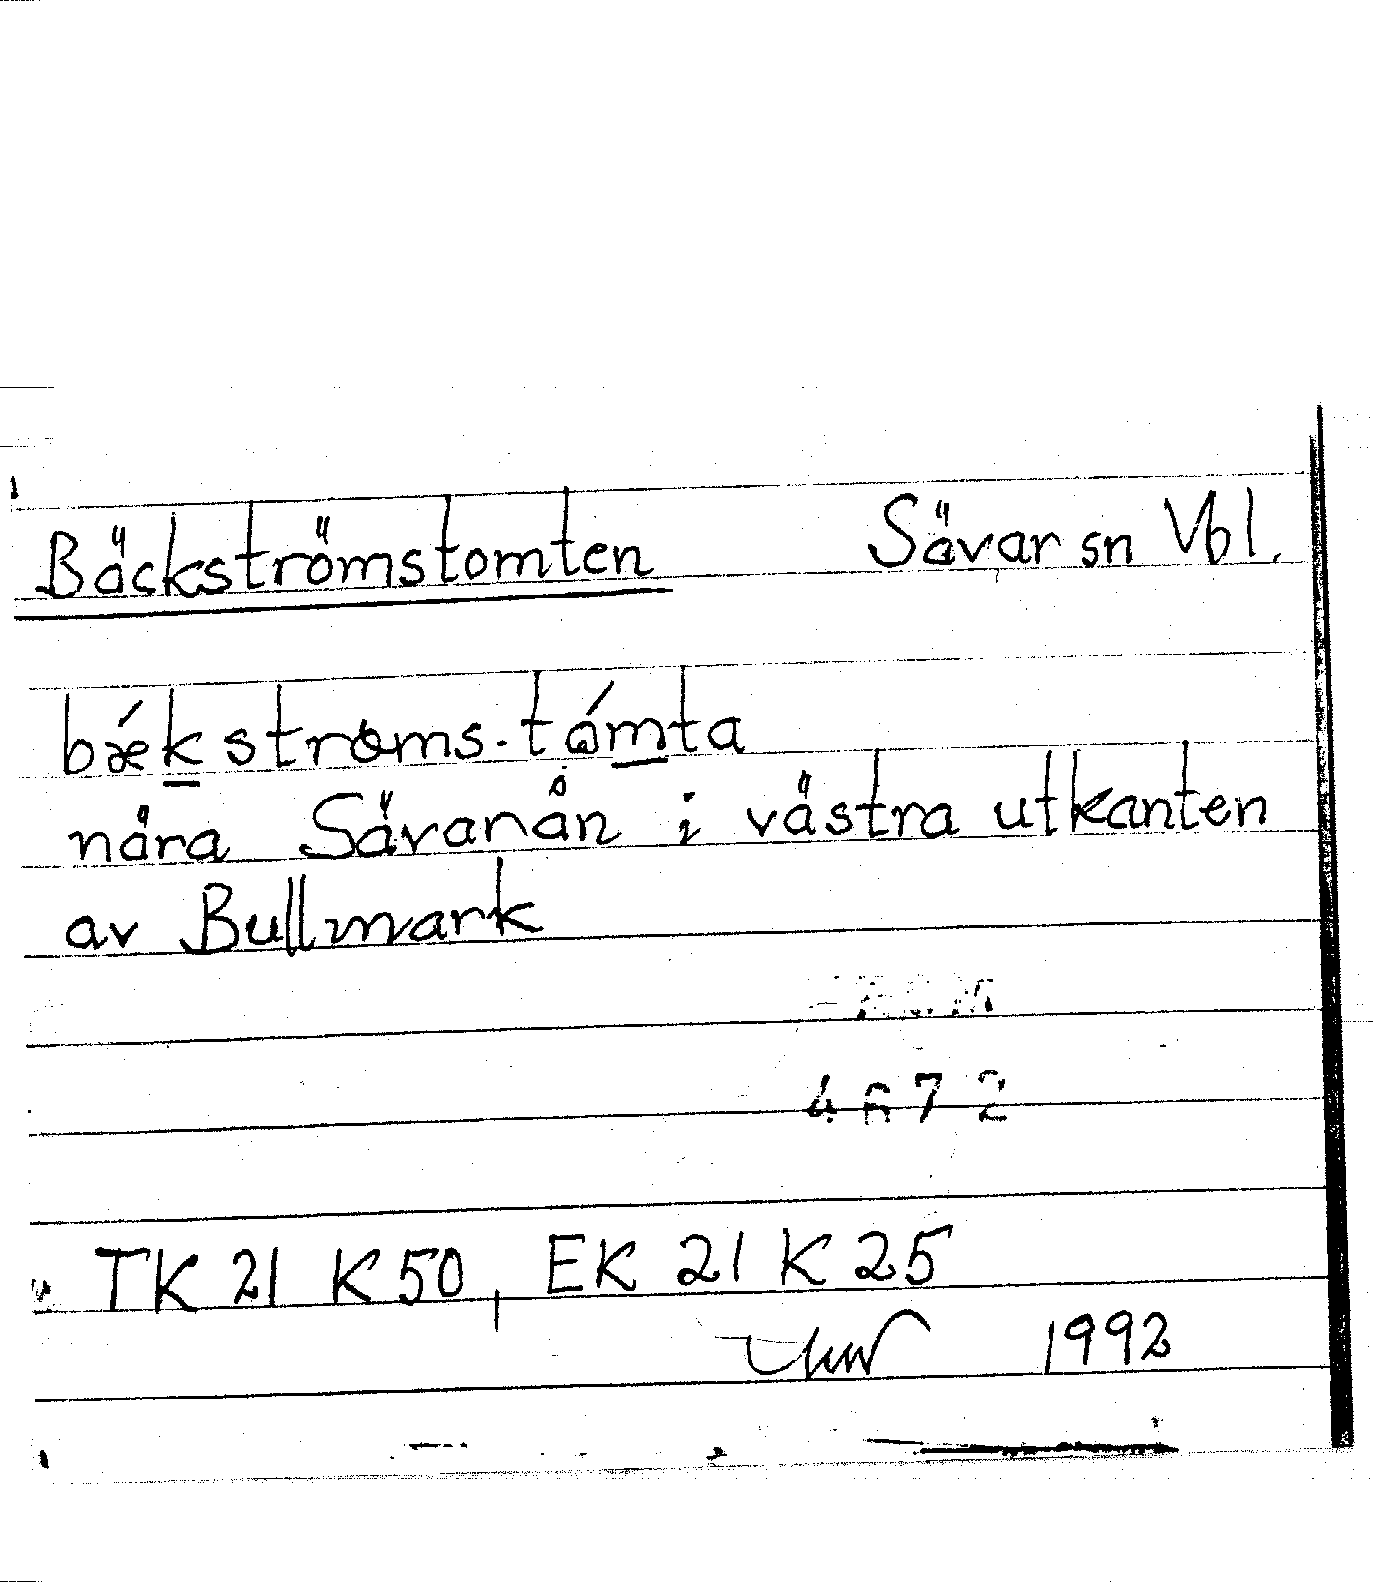 Bäckströmstomten Sävar sn Vbl.
bǽkstroms-tómta
nära Sävarån i västra utkanten
av Bullmark
4672
TK 21 K 50, EK 21 K 25
1992